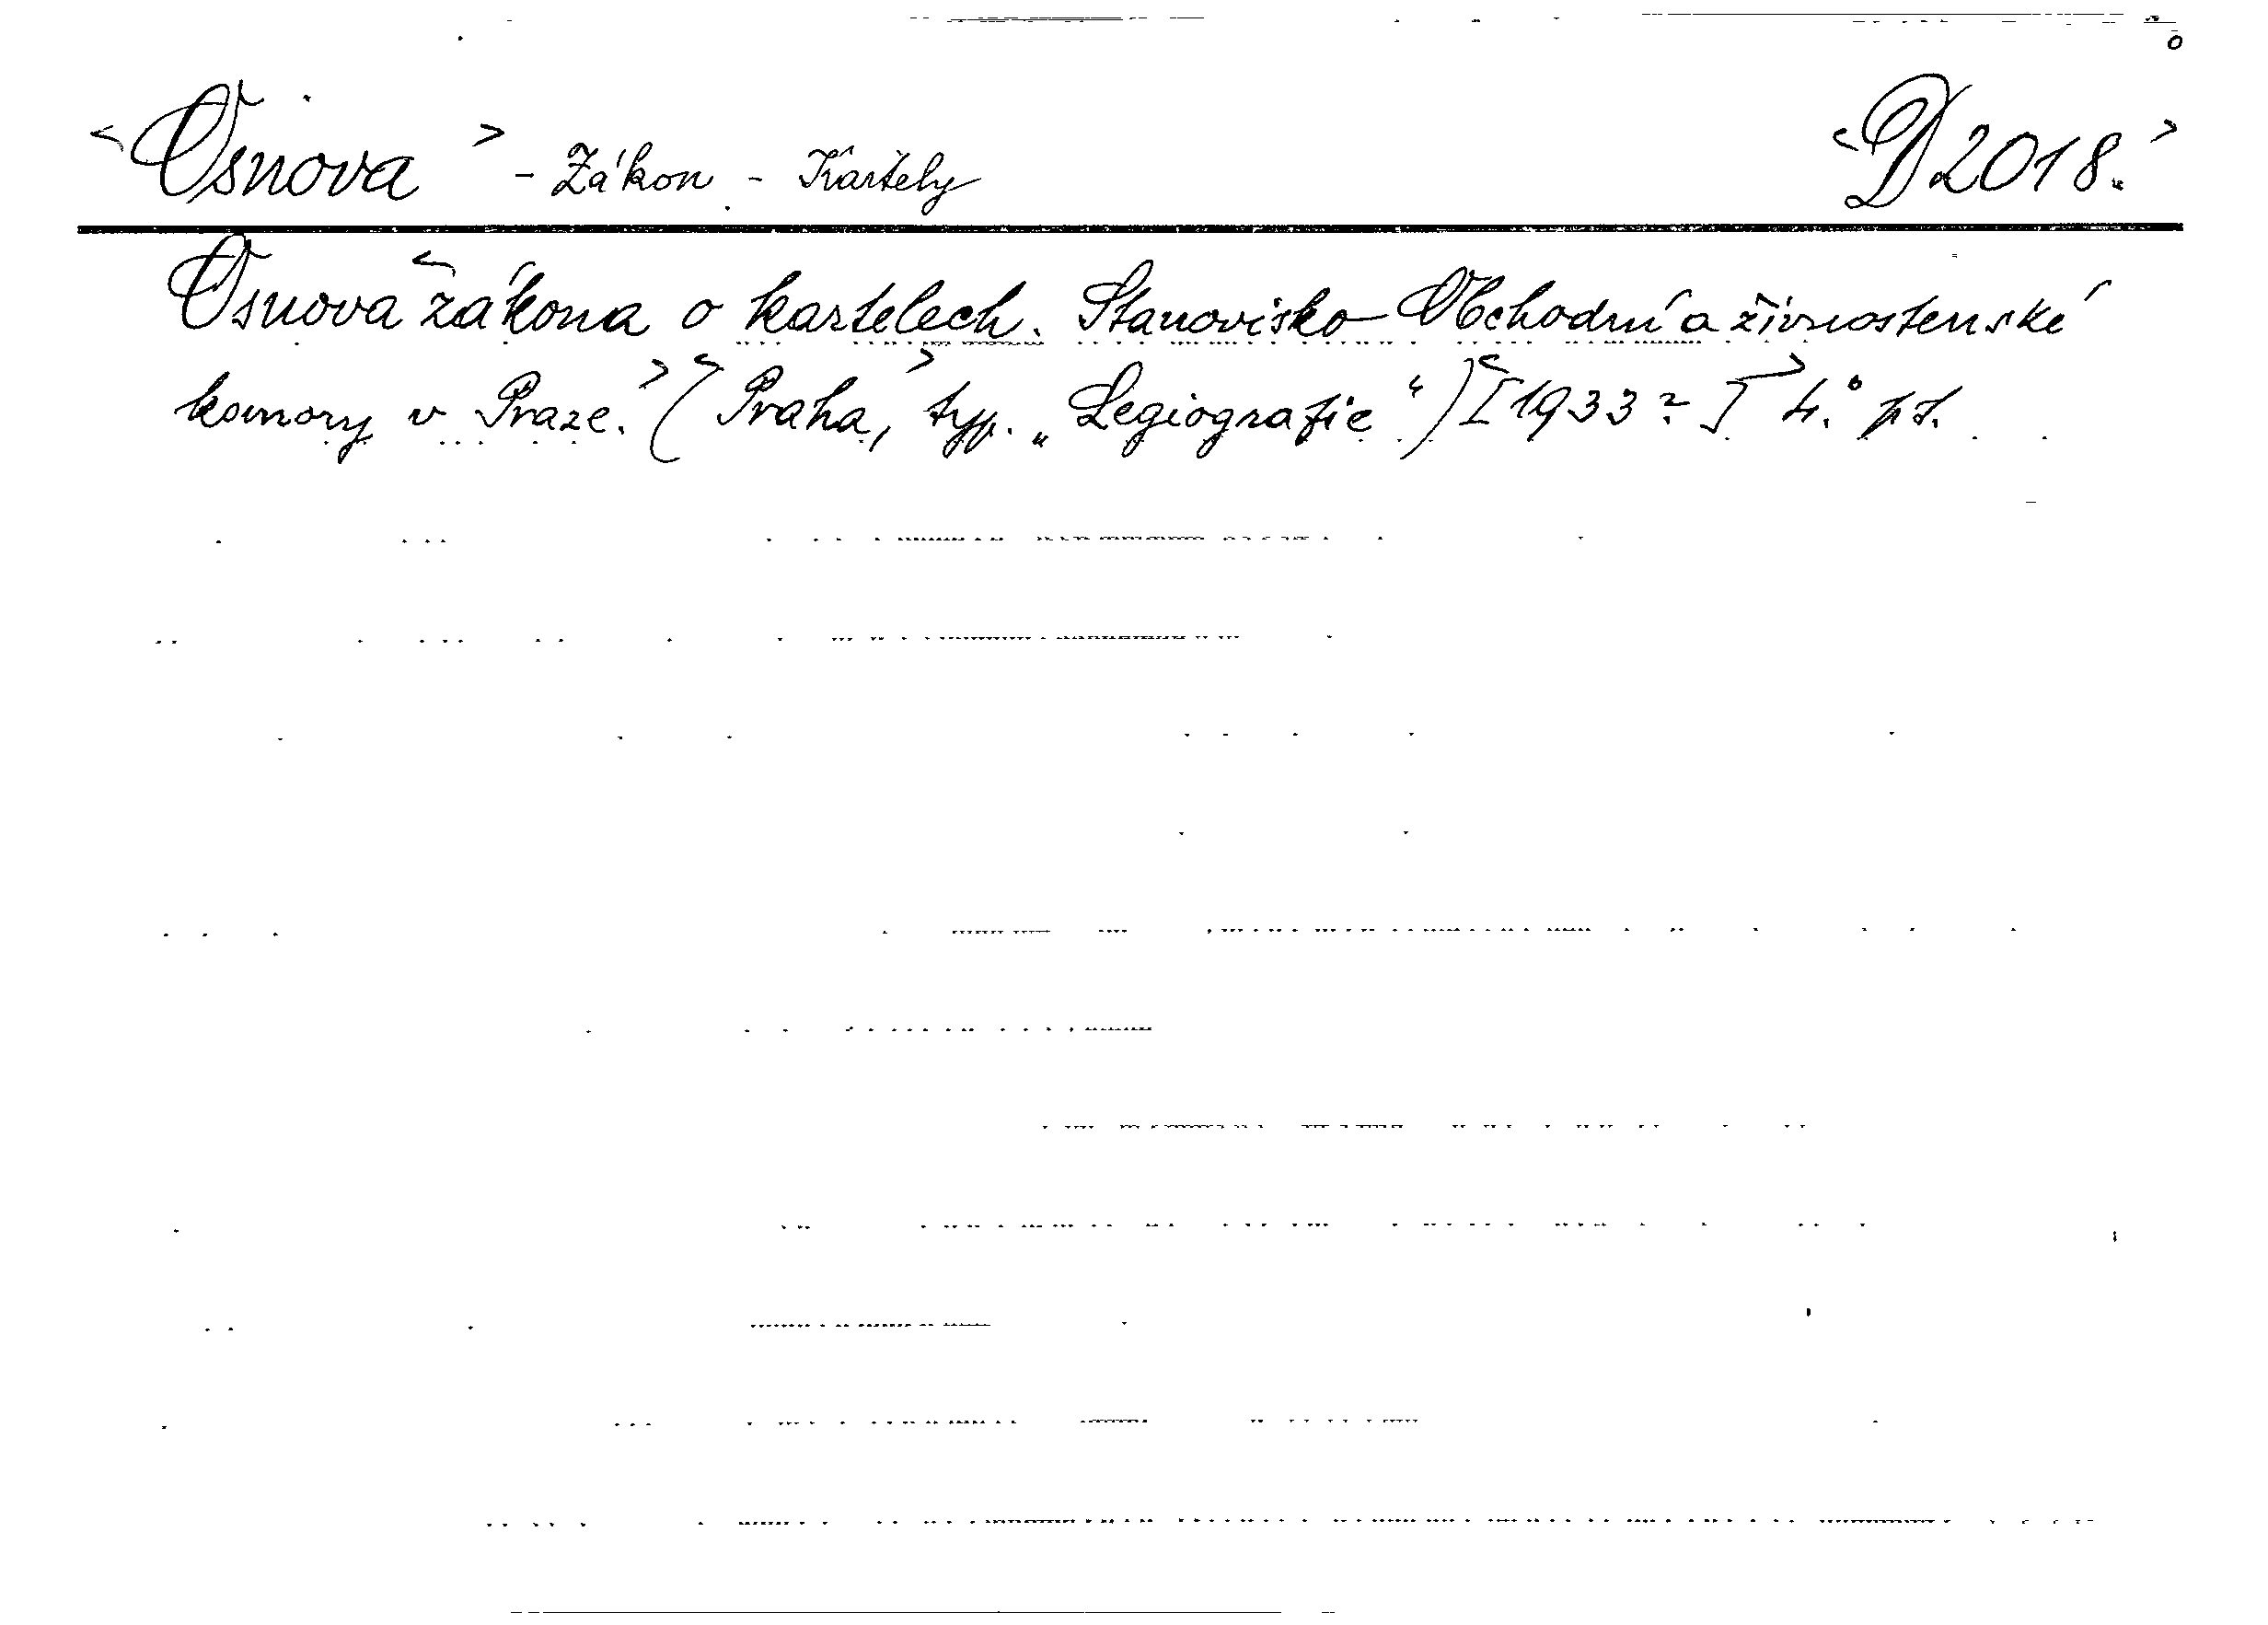 <Osnova> - Zákon - Kartely <D 2018.>
Osnova <zákona o kartelech. Stanovisko Obchodní a živnostenské
komory v Praze.> (<Praha,> typ. „Legiografie“) <[1933?]> 4.° pf.